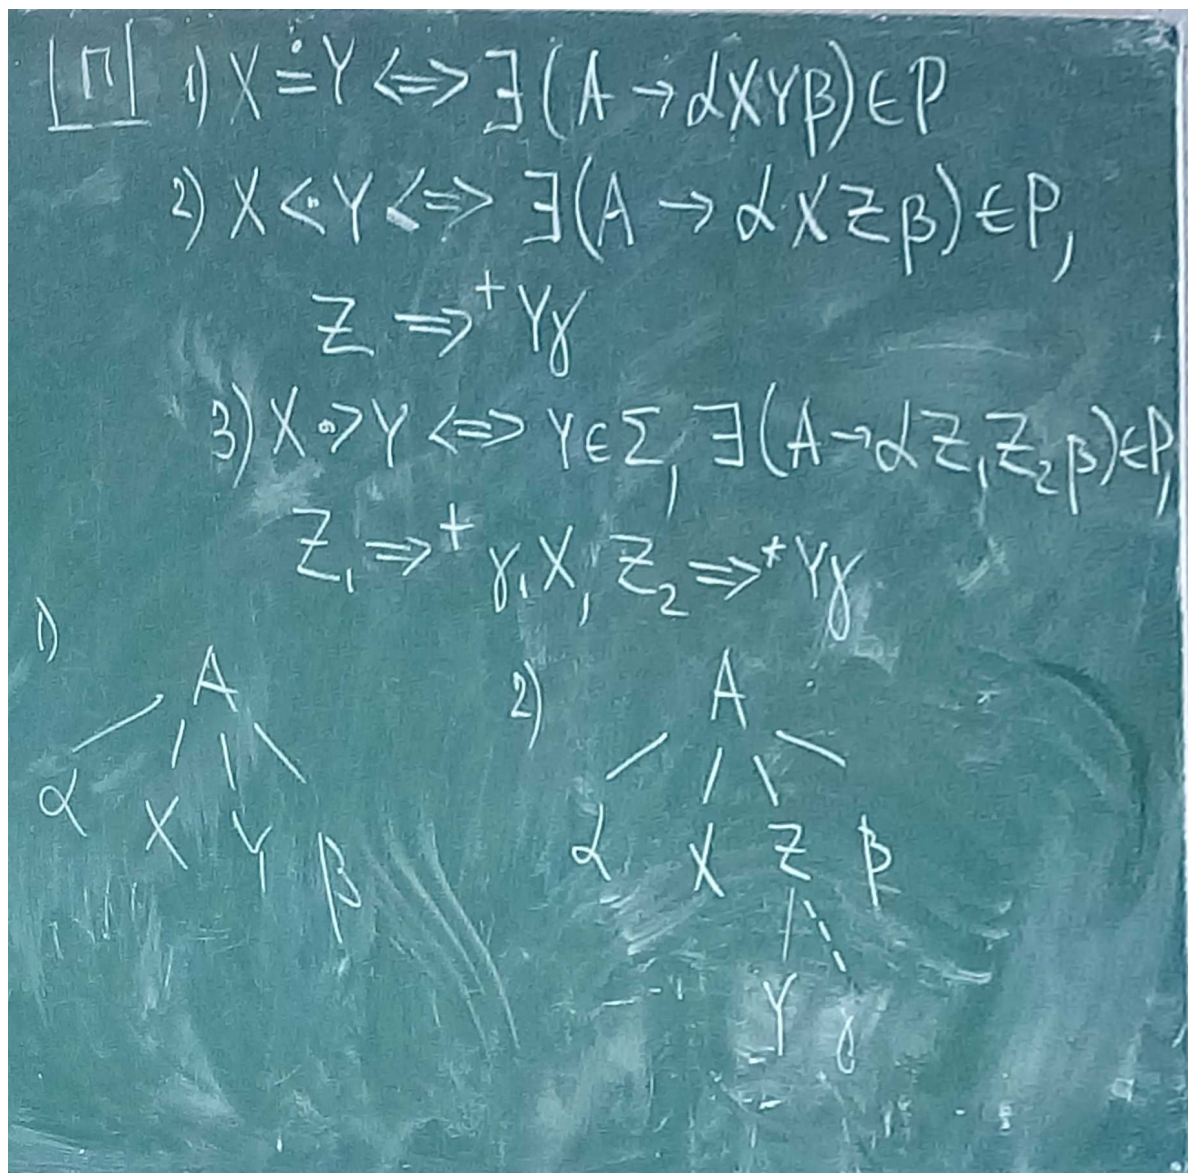 П 1) X ≐ Y <=> ∃(A → αXYβ) ∈ P
2) X <· Y <=> ∃(A → αXZβ) ∈ P,
Z =>⁺ Yγ
3) X ·> Y <=> Y ∈ Σ, ∃(A → αZ₁Z₂β) ∈ P,
Z₁ =>⁺ γ₁X, Z₂ =>* Yγ
1) 2)
A A
α X Y β α X Z β
Y γ